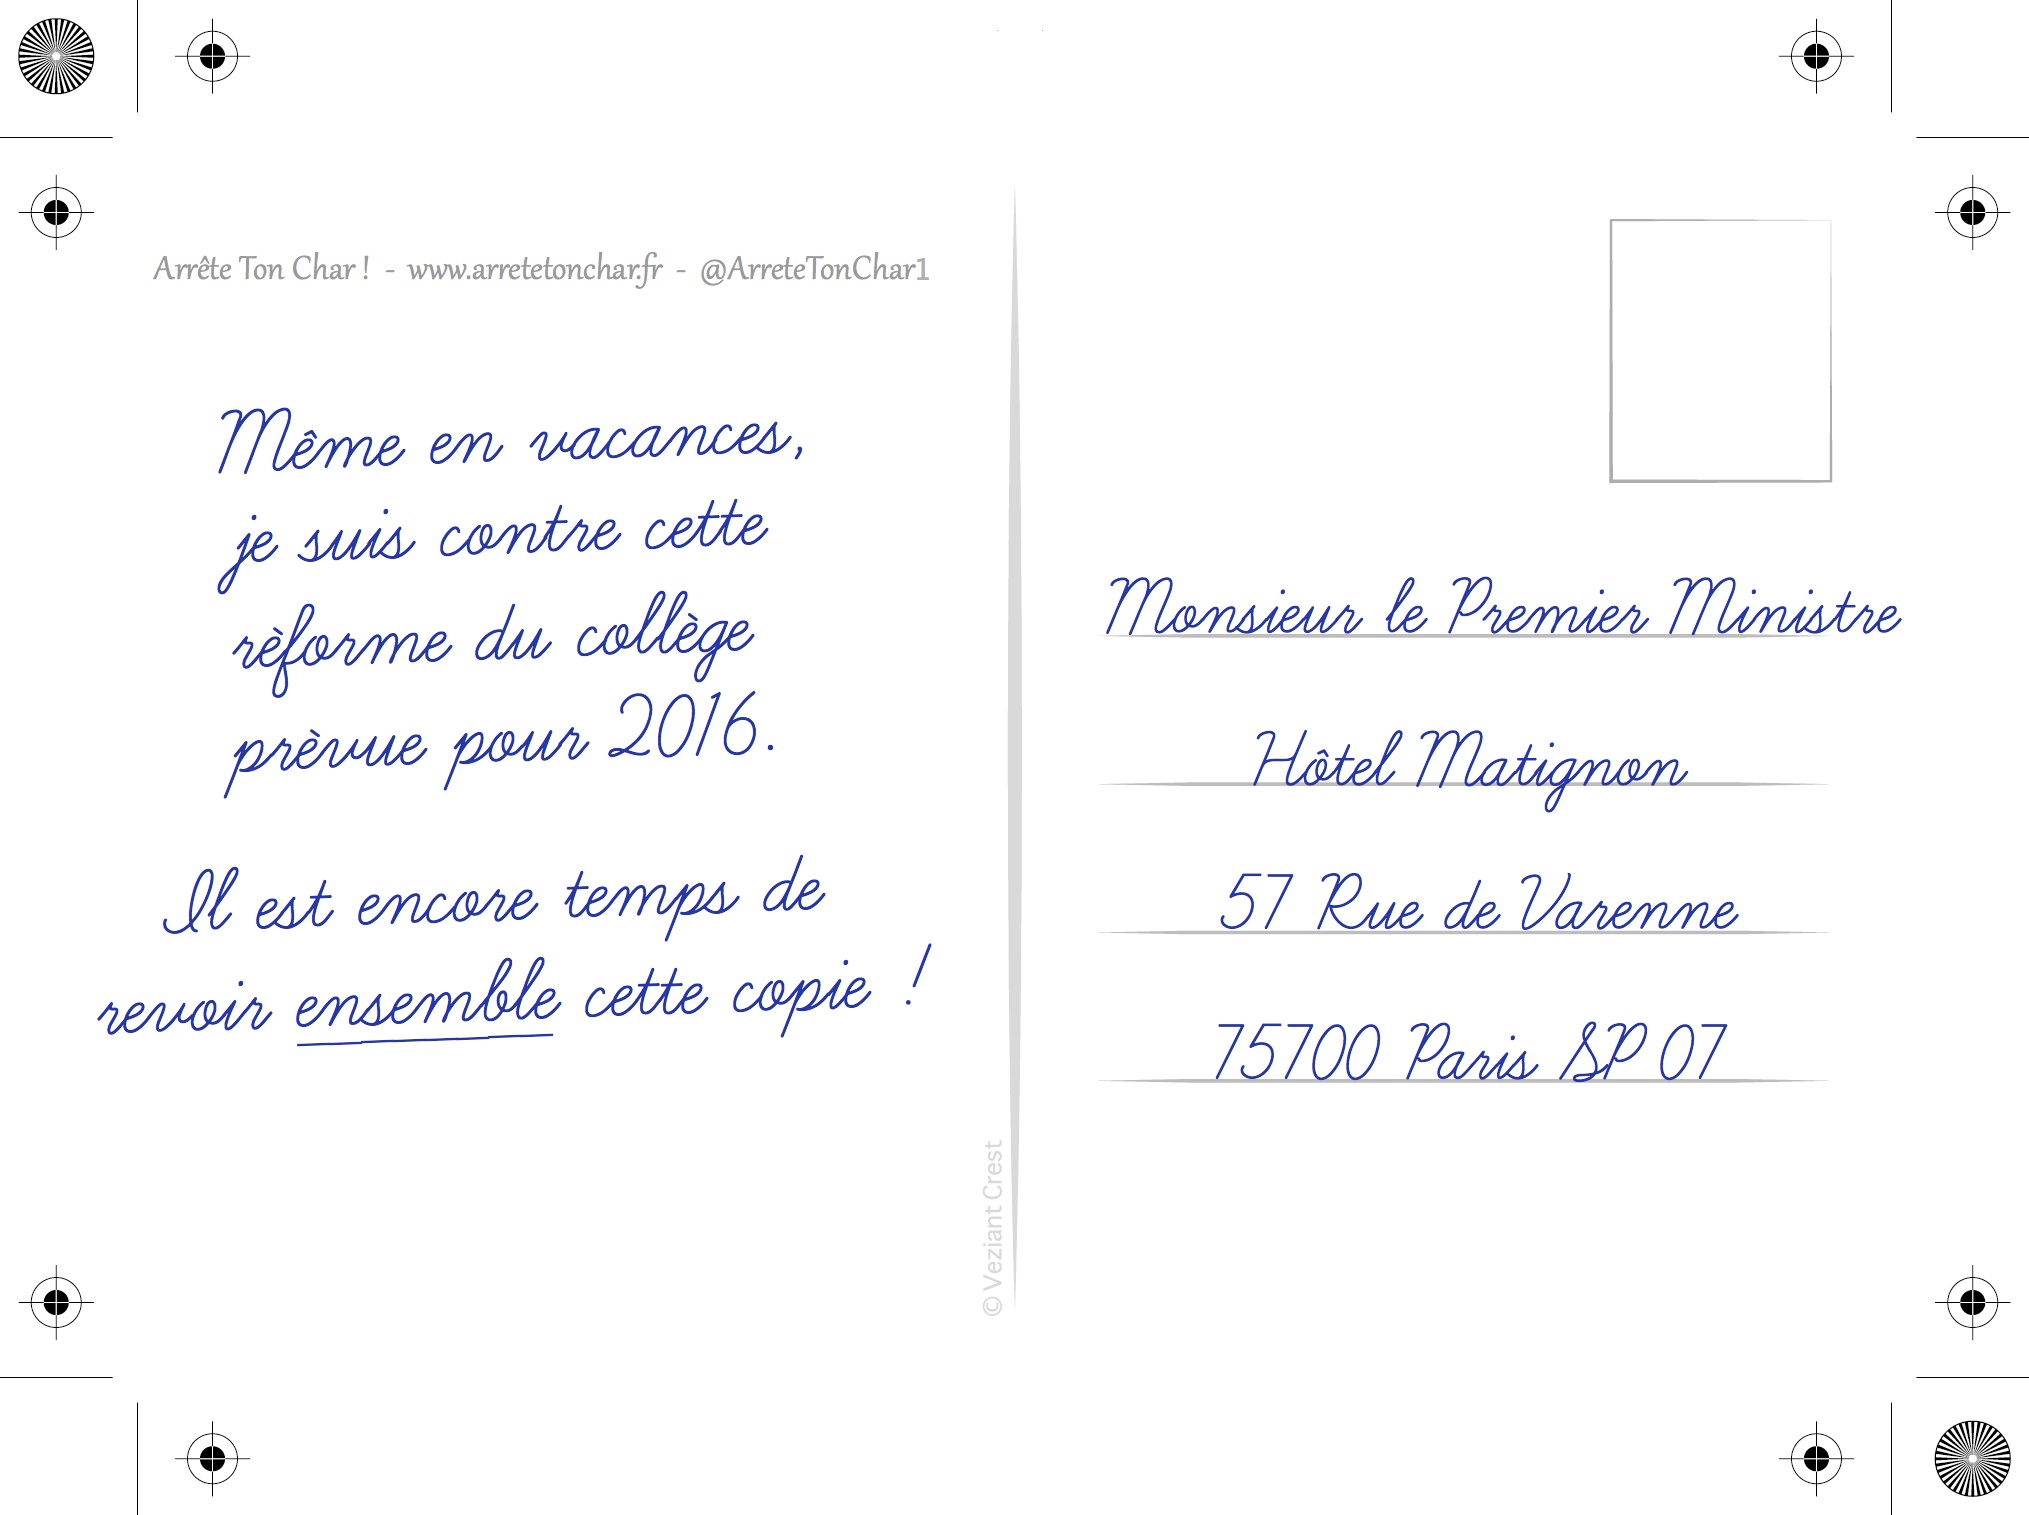 Arrête Ton Char ! - www.arretetonchar.fr - @ArreteTonChar1
Même en vacances,
je suis contre cette
rèforme du collège
prèvue pour 2016.
Il est encore temps de
revoir ensemble cette copie !
© Veziant Crest
Monsieur le Premier Ministre
Hôtel Matignon
57 Rue de Varenne
75700 Paris SP 07